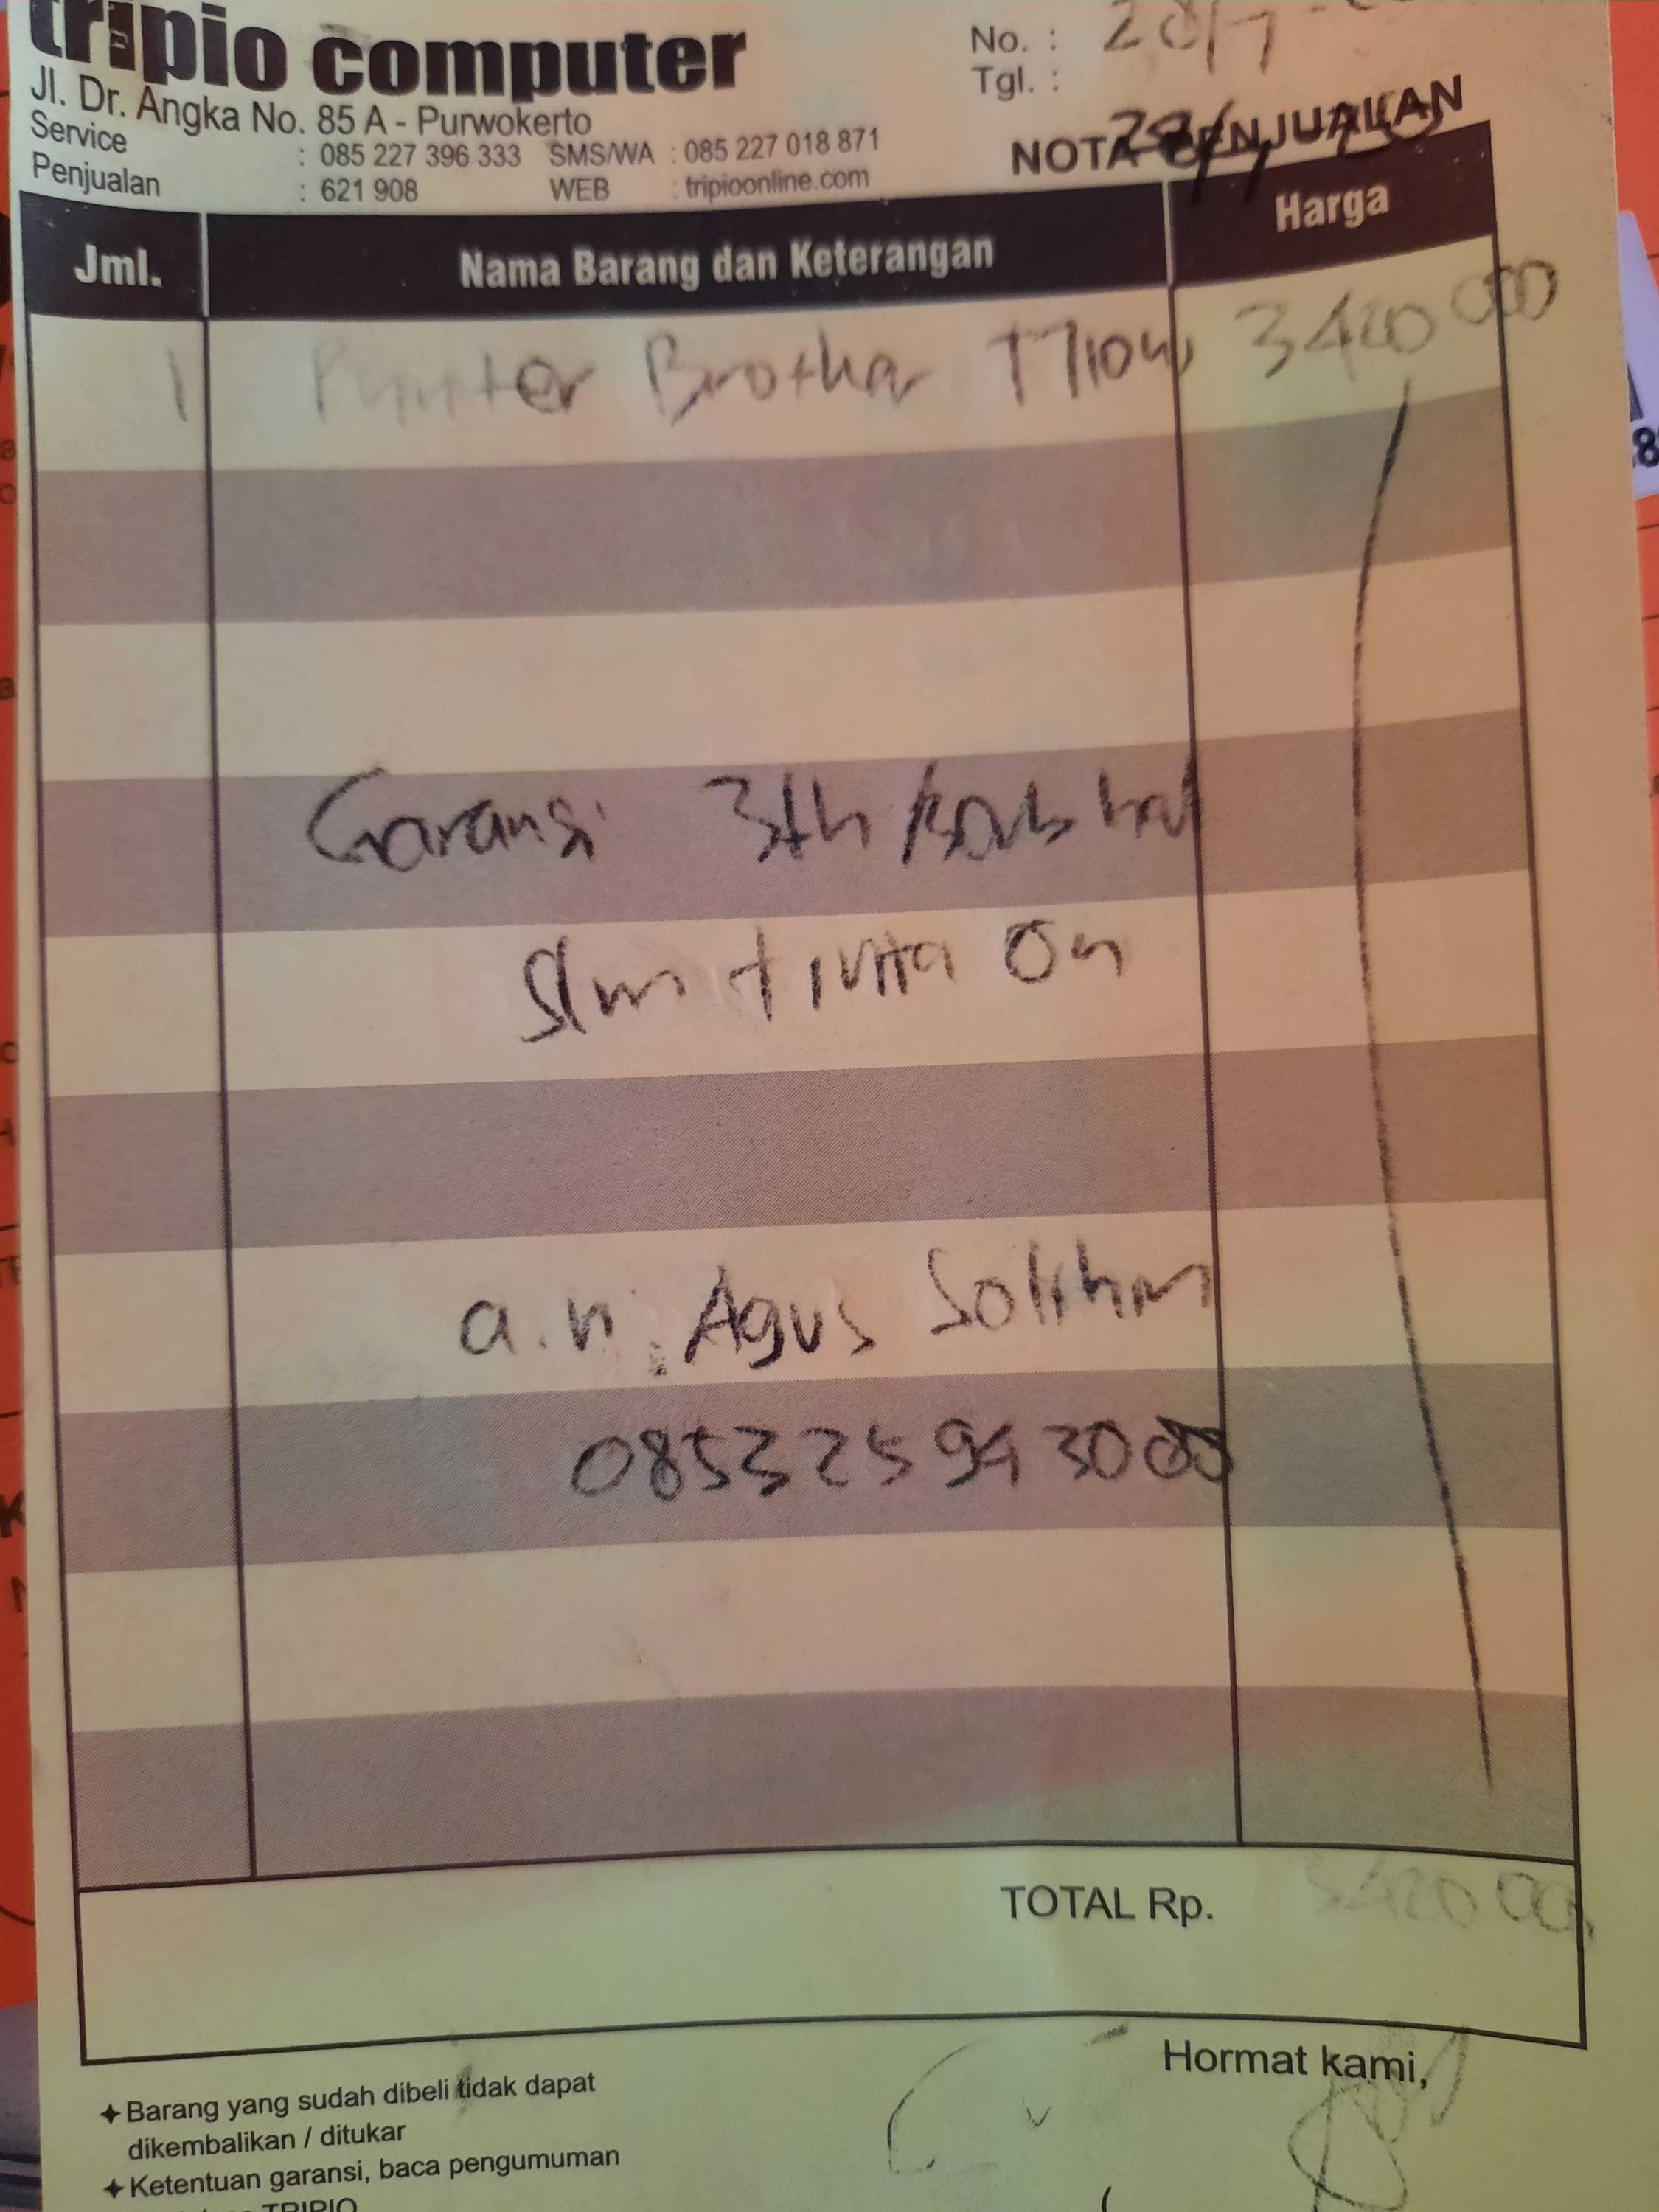 tripio computer
Jl. Dr. Angka No. 85 A - Purwokerto
Service : 085 227 396 333 SMS/WA : 085 227 018 871
Penjualan : 621 908 WEB : tripioonline.com
No. : 28/7
Tgl. :
NOTA PENJUALAN
Jml. Nama Barang dan Keterangan Harga
1 Printer Brother T710W 3420000
Garansi 3th
On
a.n. Agus Solikhin
TOTAL Rp. 3420000
Hormat kami,
✦ Barang yang sudah dibeli tidak dapat
dikembalikan / ditukar
✦ Ketentuan garansi, baca pengumuman
TRIPIO